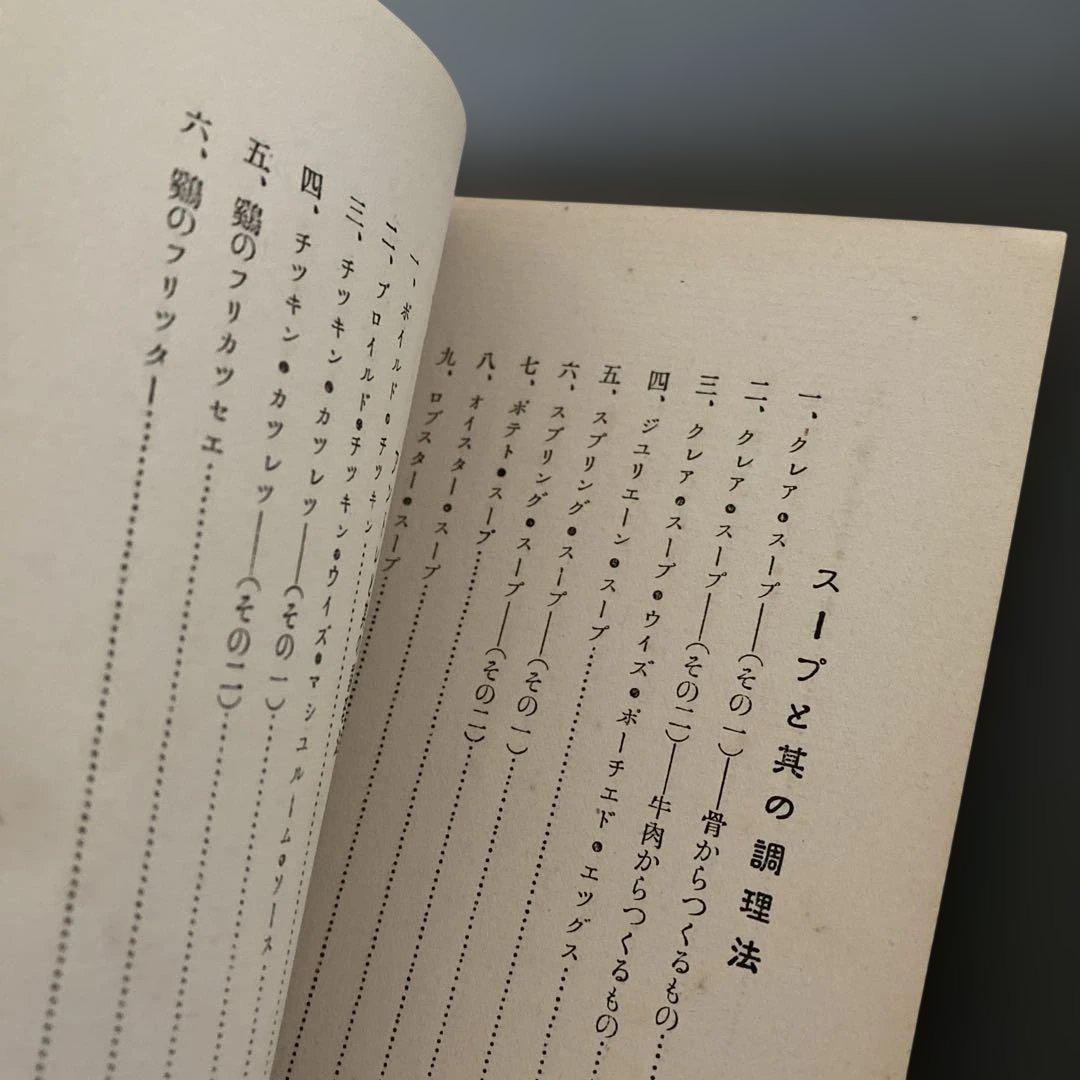 スープと其の調理法
一、クレア・スープ――(その一)――骨からつくるもの
二、クレア・スープ――(その二)――牛肉からつくるもの
三、クレア・スープ・ウイズ・ポーチエド・エツグス
四、ジユリエーン・スープ
五、スプリング・スープ――(その一)
六、スプリング・スープ――(その二)
七、ポテト・スープ
八、オイスター・スープ
九、ロブスター・スープ
一、ボイルド・チツキン
二、ブロイルド・チツキン・ウイズ・マシユルーム・ソース
三、チツキン・カツレツ――(その一)
四、チツキン・カツレツ――(その二)
五、鷄のフリカツセエ
六、鷄のフリツター